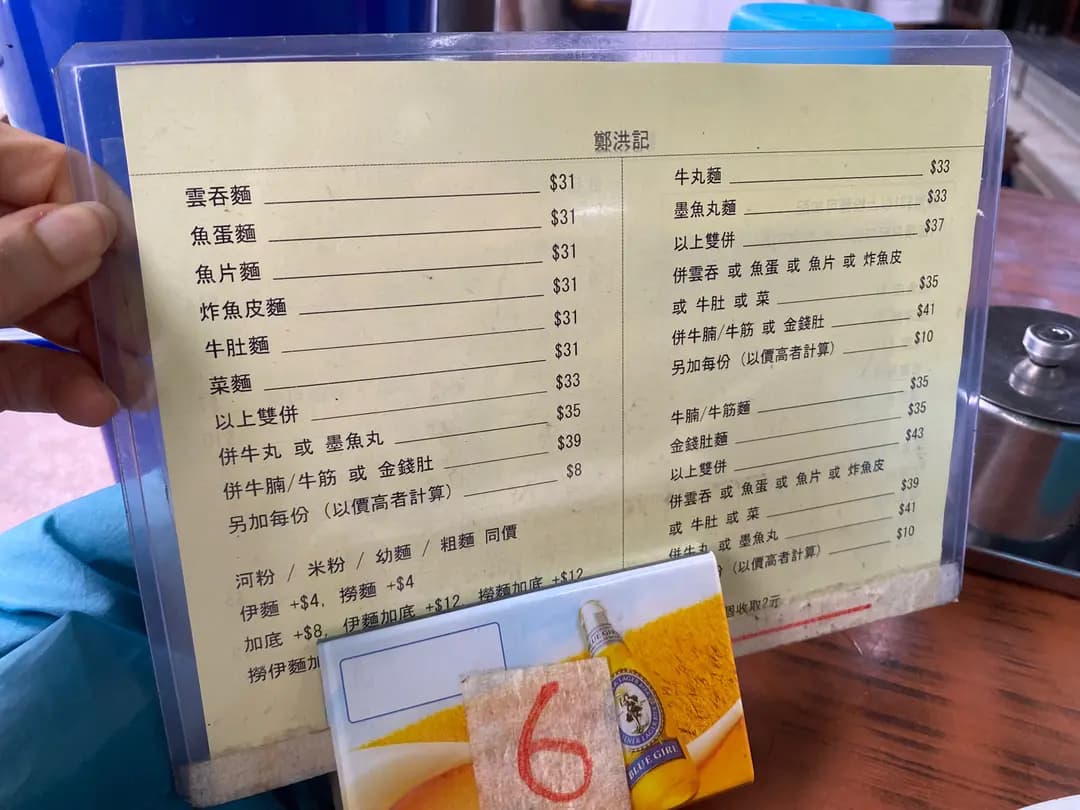 鄭洪記
雲吞麵 $31
魚蛋麵 $31
魚片麵 $31
炸魚皮麵 $31
牛肚麵 $31
菜麵 $31
以上雙併 $33
併牛丸 或 墨魚丸 $35
併牛腩/牛筋 或 金錢肚 $39
另加每份 (以價高者計算) $8
河粉 / 米粉 / 幼麵 / 粗麵 同價
伊麵 +$4, 撈麵 +$4
加底 +$8, 伊麵加底 +$12, 撈麵加底 +$12
撈伊麵加
牛丸麵 $33
墨魚丸麵 $33
以上雙併 $37
併雲吞 或 魚蛋 或 魚片 或 炸魚皮
或 牛肚 或 菜 $35
併牛腩/牛筋 或 金錢肚 $41
另加每份 (以價高者計算) $10
牛腩/牛筋麵 $35
金錢肚麵 $35
以上雙併 $43
併雲吞 或 魚蛋 或 魚片 或 炸魚皮
或 牛肚 或 菜 $39
併牛丸 或 墨魚丸 $41
(以價高者計算) $10
收取2元
BLUE GIRL
6